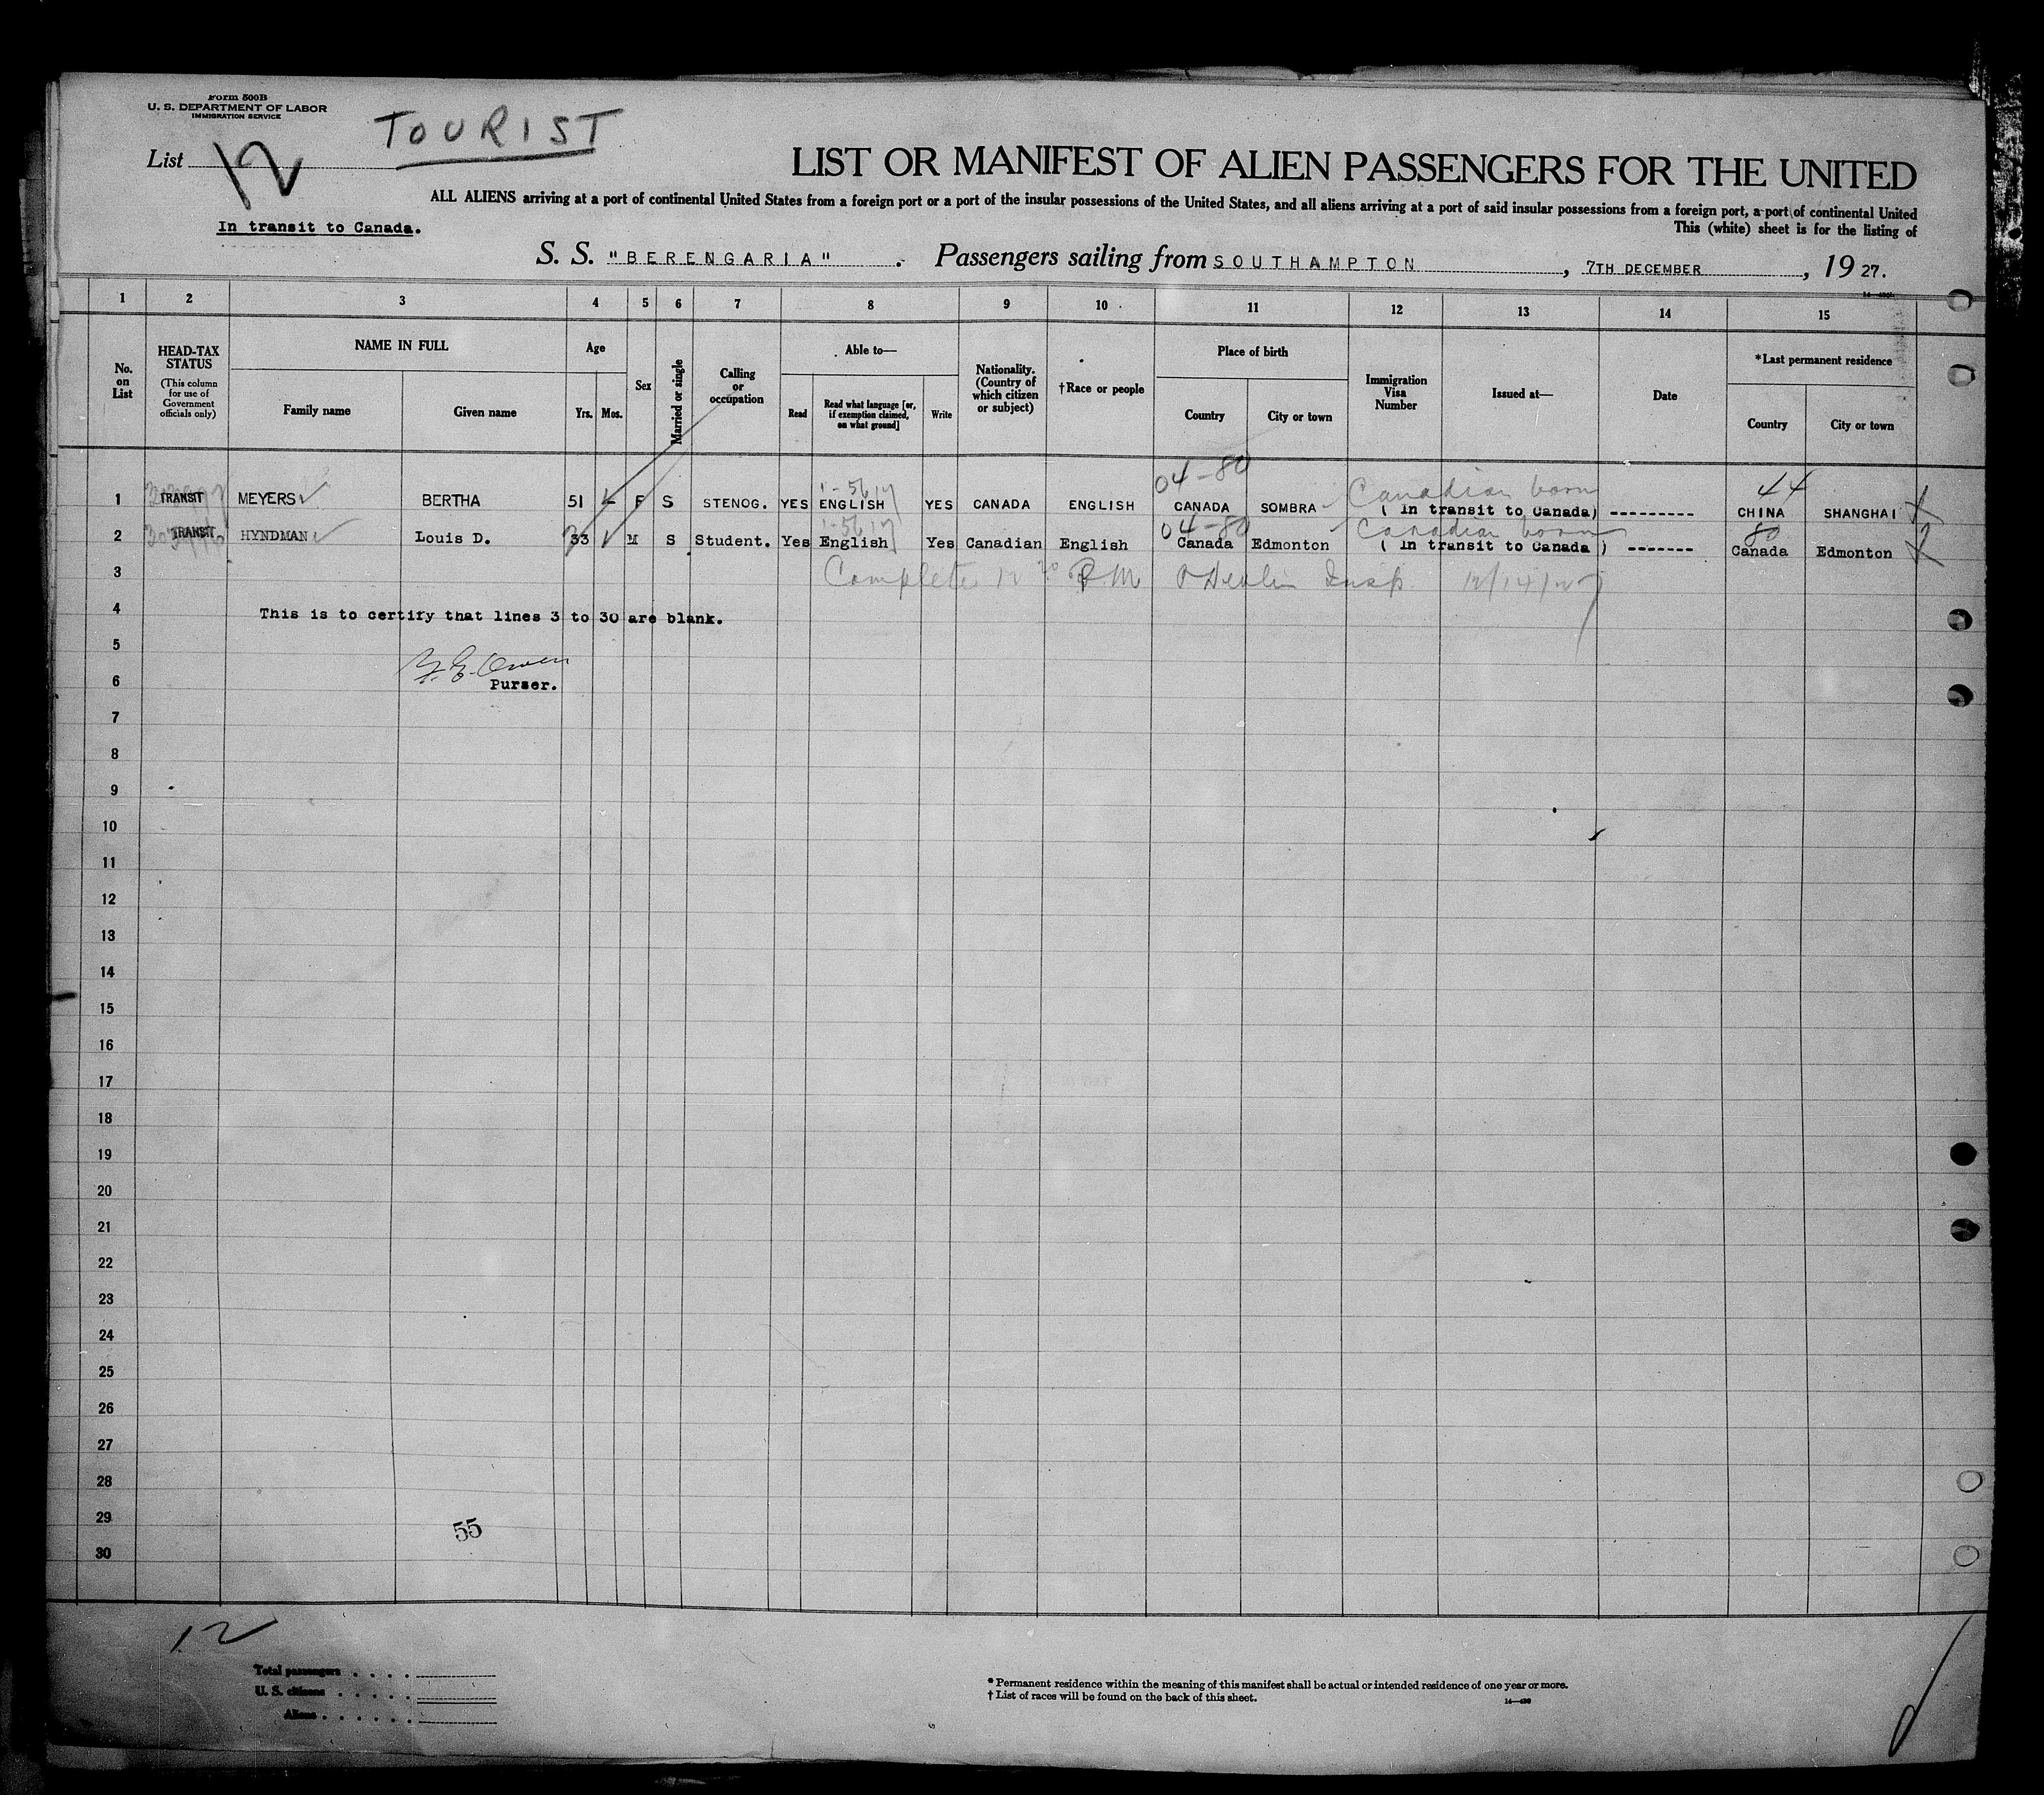 Form 500B
U. S. DEPARTMENT OF LABOR
IMMIGRATION SERVICE
TOURIST
List 12
LIST OR MANIFEST OF ALIEN PASSENGERS FOR THE UNITED
ALL ALIENS arriving at a port of continental United States from a foreign port or a port of the insular possessions of the United States, and all aliens arriving at a port of said insular possessions from a foreign port, a port of continental United
This (white) sheet is for the listing of
In transit to Canada.
S. S. "BERENGARIA". Passengers sailing from SOUTHAMPTON, 7TH DECEMBER, 1927.
1 2 3 4 5 6 7 8 9 10 11 12 13 14 15
No. on List
HEAD-TAX STATUS
(This column for use of Government officials only)
NAME IN FULL
Family name
Given name
Age
Yrs. Mos.
Sex
Married or single
Calling or occupation
Able to—
Read
Read what language [or, if exemption claimed, on what ground]
Write
Nationality. (Country of which citizen or subject)
†Race or people
Place of birth
Country
City or town
Immigration Visa Number
Issued at—
Date
*Last permanent residence
Country
City or town
04-80 Canadian born 44
1 TRANSIT MEYERS BERTHA 51 F S STENOG. YES ENGLISH YES CANADA ENGLISH CANADA SOMBRA ( In transit to Canada) --------- CHINA SHANGHAI
04-80 Canadian born 80
2 TRANSIT HYNDMAN Louis D. 33 M S Student. Yes English Yes Canadian English Canada Edmonton ( In transit to Canada ) ------- Canada Edmonton
3 Complete PM Insp. 12/14/27
4 This is to certify that lines 3 to 30 are blank.
5
6 Owen
Purser.
7
8
9
10
11
12
13
14
15
16
17
18
19
20
21
22
23
24
25
26
27
28
29 55
30
12
Total passengers . . . .
U. S. citizens . . . . .
Aliens . . . . . .
* Permanent residence within the meaning of this manifest shall be actual or intended residence of one year or more.
† List of races will be found on the back of this sheet.